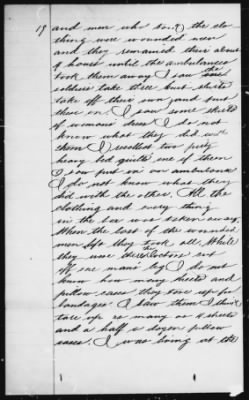 19 and men who tore the clo
thing were wounded men
and they remained there about
9 hours until the ambulances
took them away. I saw the
soldiers take three bust shirts
take off their own and put
these on. I saw some skirts
of womans there I do not
know what they did with
them I recollect two pretty
heavy bed quilts one of them
I saw put in an ambulance
I do not know what they
did with the other. All the
clothing and every thing
in the box was taken away
When the last of the wounded
men left they took all. While
they were there the doctors cut
off one mans leg I do not
know how many sheets and
pillow cases they tore up for
bandages I saw them I think
tore up as many as 4 sheets
and a half a dozen pillow
cases. I was living at the